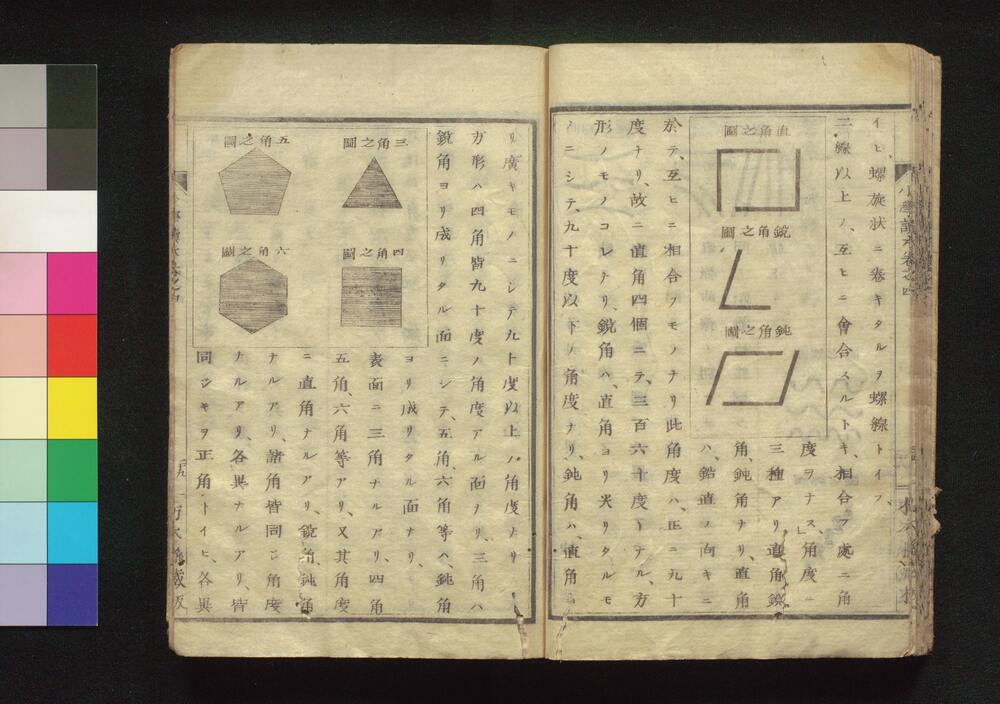 イヒ、螺旋状ニ巻キタルヲ螺線トイフ、
二線以上ノ、互ヒニ會合スルトキ、相合フ處ニ角
直角之圖
鋭角之圖
鈍角之圖
度ヲナス、角度ニ
三種アリ、直角、鋭
角、鈍角ナリ、直角
ハ、鉛直ノ向キニ
於テ、互ヒニ相合フモノナリ此角度ハ、正ニ九十
度ナリ、故ニ直角四個ニテ、三百六十度トナル、方
形ノモノコレナリ、鋭角ハ、直角ヨリ尖リタルモ
ノニシテ、九十度以下ノ角度ナリ、鈍角ハ、直角ヨ
リ廣キモノニシテ九十度以上ノ角度ナリ
方形ハ四角皆九十度ノ角度アル面ナリ、三角ハ
鋭角ヨリ成リタル面ニシテ、五角、六角等ハ、鈍角
三角之圖
四角之圖
五角之圖
六角之圖
ヨリ成リタル面ナリ、
表面ニ三角ナルアリ、四角
五角、六角等アリ、又其角度
ニ直角ナルアリ、鋭角、鈍角
ナルアリ、諸角皆同ジ角度
ナルアリ、各異ナルアリ、皆
同ジキヲ正角トイヒ、各異